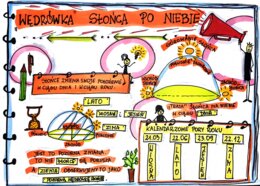 WĘDRÓWKA SŁOŃCA PO NIEBIE
SŁOŃCE ZMIENIA SWOJE POŁOŻENIE
W CIĄGU DNIA I W CIĄGU ROKU.
LATO
WIOSNA I JESIEŃ
ZIMA
JEST TO POZORNA ZMIANA
TO NIE SŁOŃCE SIĘ PORUSZA
A ZIEMIA OBSERWUJEMY TO JAKO
"TRASA" SŁOŃCA NA NIEBIE
W CIĄGU DNIA
KALENDARZOWE PORY ROKU
21.03 22.06 23.09 22.12
WIOSNA LATO JESIEŃ ZIMA